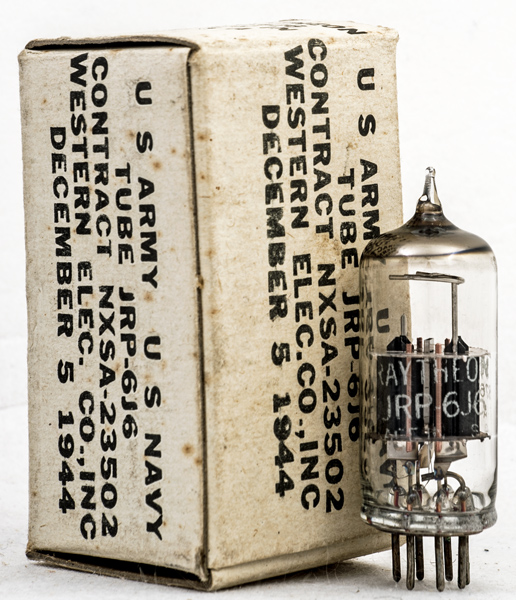 U S ARMY U S NAVY
TUBE JRP-6J6
CONTRACT NXSA-23502
WESTERN ELEC. CO., INC
DECEMBER 5 1944
U S ARM
TUBE JRP-6J6
CONTRACT NXSA-23502
WESTERN ELEC.CO.,INC
DECEMBER 5 1944
RAYTHEON
JRP-6J6